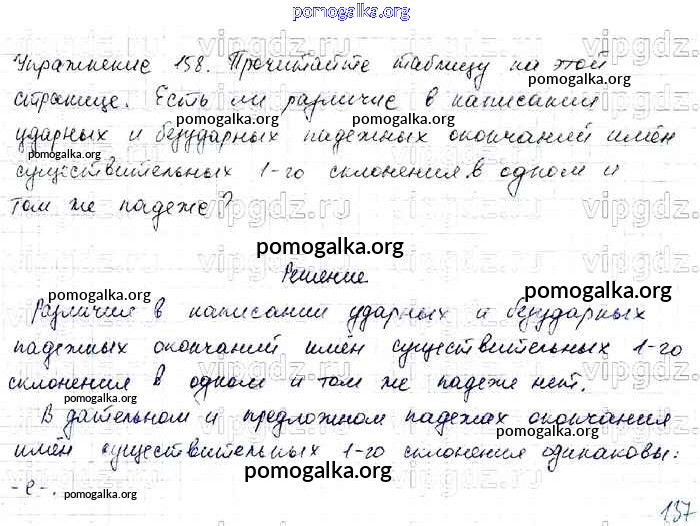 pomogalka.org
Упражнение 158. Прочитайте таблицу на этой
странице. Есть ли различие в написании
ударных и безударных падежных окончаний имён
существительных 1-го склонения в одном и
том же падеже?
Решение
Различия в написании ударных и безударных
падежных окончаний имён существительных 1-го
склонения в одном и том же падеже нет.
В дательном и предложном падежах окончания
имён существительных 1-го склонения одинаковы:
-е-.
137
vipgdz.ru
pomogalka.org
pomogalka.org
pomogalka.org
pomogalka.org
pomogalka.org
pomogalka.org
pomogalka.org
pomogalka.org
pomogalka.org